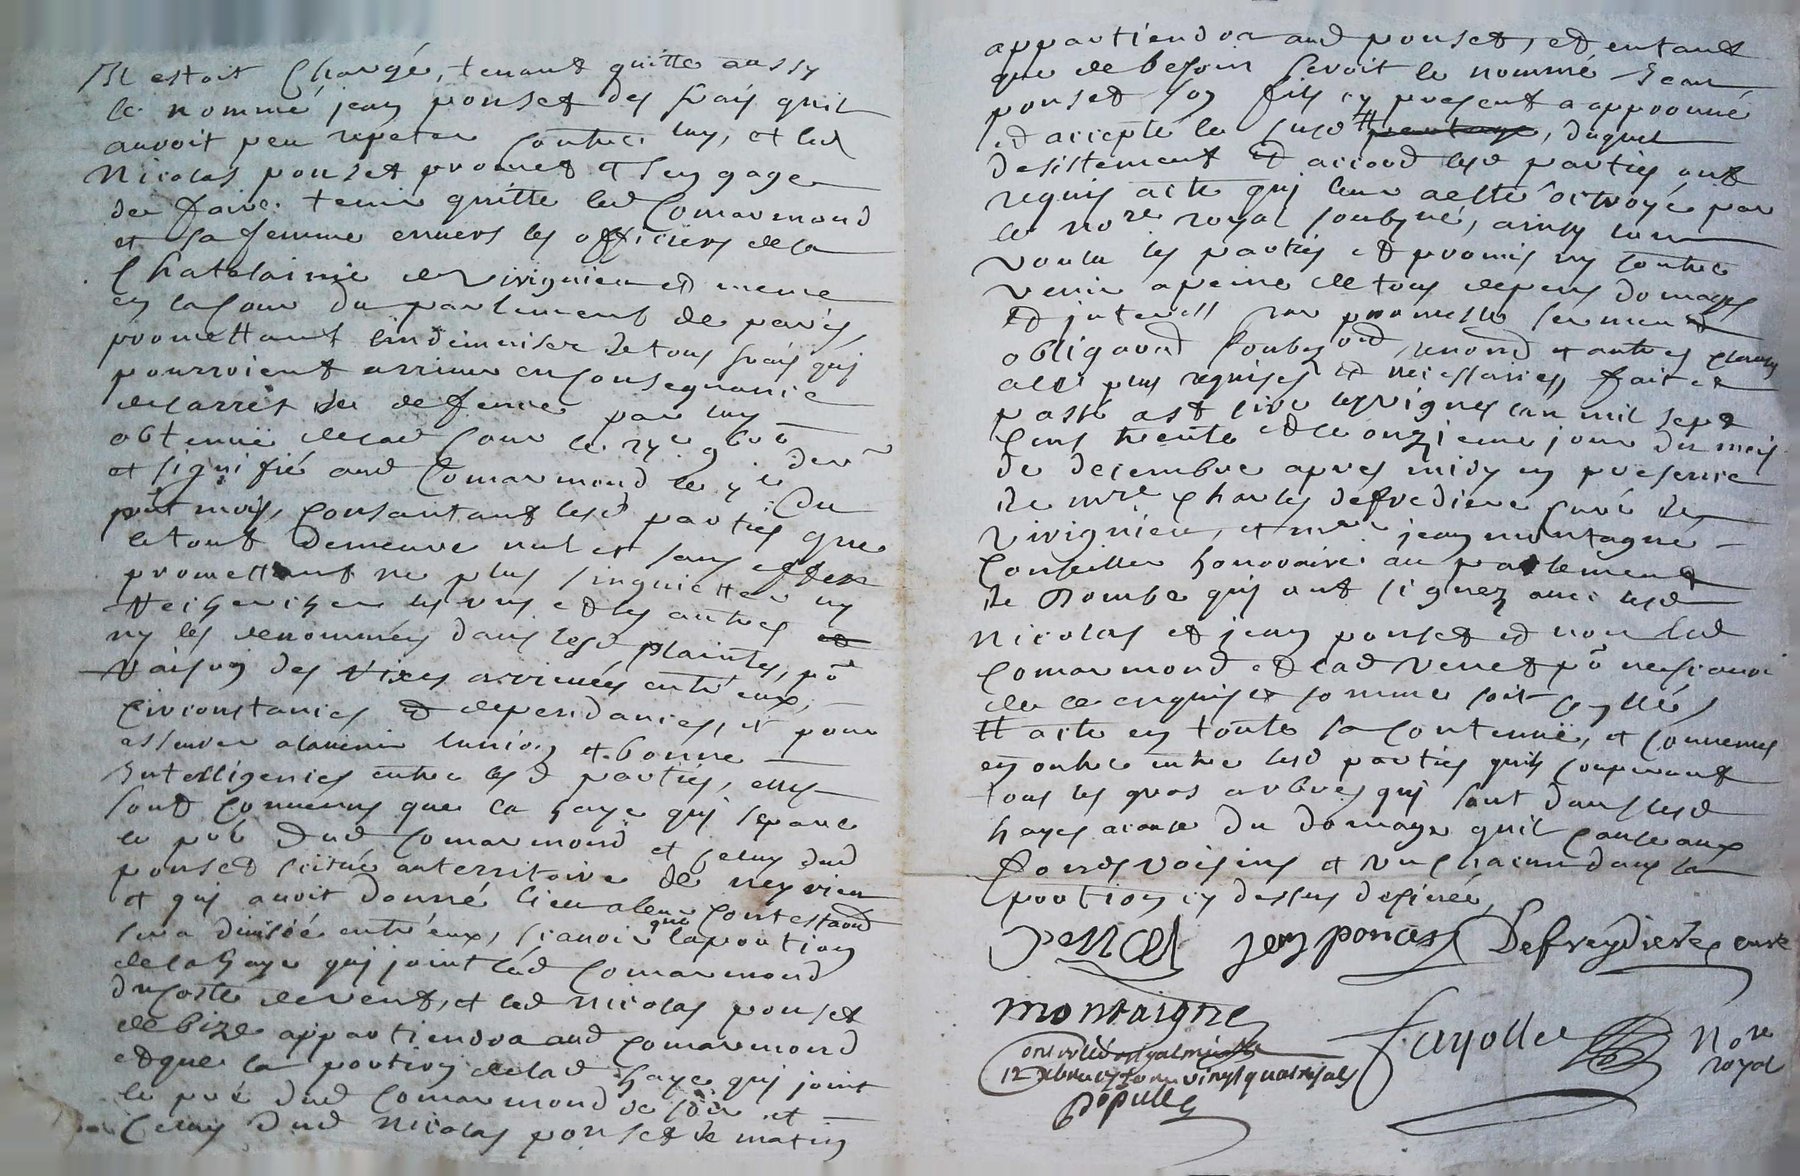 Il estoit chargé, tenant quitte aussy
le nommé jean ponset des frais quil
auroit peu repeter contre luy, et led
Nicolas ponset promet et sengage
de faire tenir quitte led Comarmond
et sa femme envers les officiers de la
Chatelainie de Virignieu et meme
en la Cour du parlement de paris,
promettant lindemniser de tous frais qui
pourroient arriver en consequance
de larrest de defence par luy
obtenue delad Cour le 9bre der
et signifié aud Comarmond le du
pñt mois, Consantant lesd parties que
le tout demeure nul et sans effet
promettant ne plus sinquietter ny
rechericher les uns et les autres
ny les denommés dans lesd plaintes, pr
raison des rixes arrivées entr'eux,
circonstances et dependances, et pour
assurer alavenir lunion et bonne
Intelligences entre lesd parties, elles
sont Convenus que la haye qui separe
le pré dud Comarmond et celuy dud
ponset scitué au territoire de neyrieu
et qui avoit donné lieu aleur Contestaon
sera divisée entr'eux, scavoir que la portion
dela haye qui joint led Comarmond
du costé de vent, et led Nicolas ponset
de bize appartiendra aud Comarmond
et que la portion delad haye qui joint
le pré dud Comarmond de soir et
Celuy dud Nicolas ponset de matin
appartiendra aud ponset, et entant
que de besoin seroit le nommé Jean
ponset son fils cy present a approuvé
et accepté le susd, duquel
desistement et accord lesd parties ont
requis acte qui leur a esté octroyé par
le nore royal soubsné, ainsy lont
voulu les parties et promis ny contre
venir apeine de tous depens domages
et interest par promesse serment
obligaond soubzond renond et autres clauses
alce plus requises et necessaires, fait et
passé a st Cire les vignes lan mil sept
Cens trente et le onzieme jour du mois
de decembre apres midy en presence
de mre Charles defrediere Curé de
Virignieu, et mre jean montagne
Conseiller honoraire au parlement
de Dombe qui ont signez avec lesd
Nicolas et jean ponset et non led
Comarmond et lad Venet pr ne scavoir
de ce enquis et somme soit scellés
# acte en toute sa Contenue, et Convenus
en outre entre lesd parties quils couperont
tous les gros arbres qui sont dans lesd
hayes acause du domage quil cause aux
fonds voisins et un chacun dans la
portion cy dessus designée,
Ponset jean ponset Defreydiere cure
montaigne
fayolle Nore
royal
12 xbre vingt quatre sols
Populle